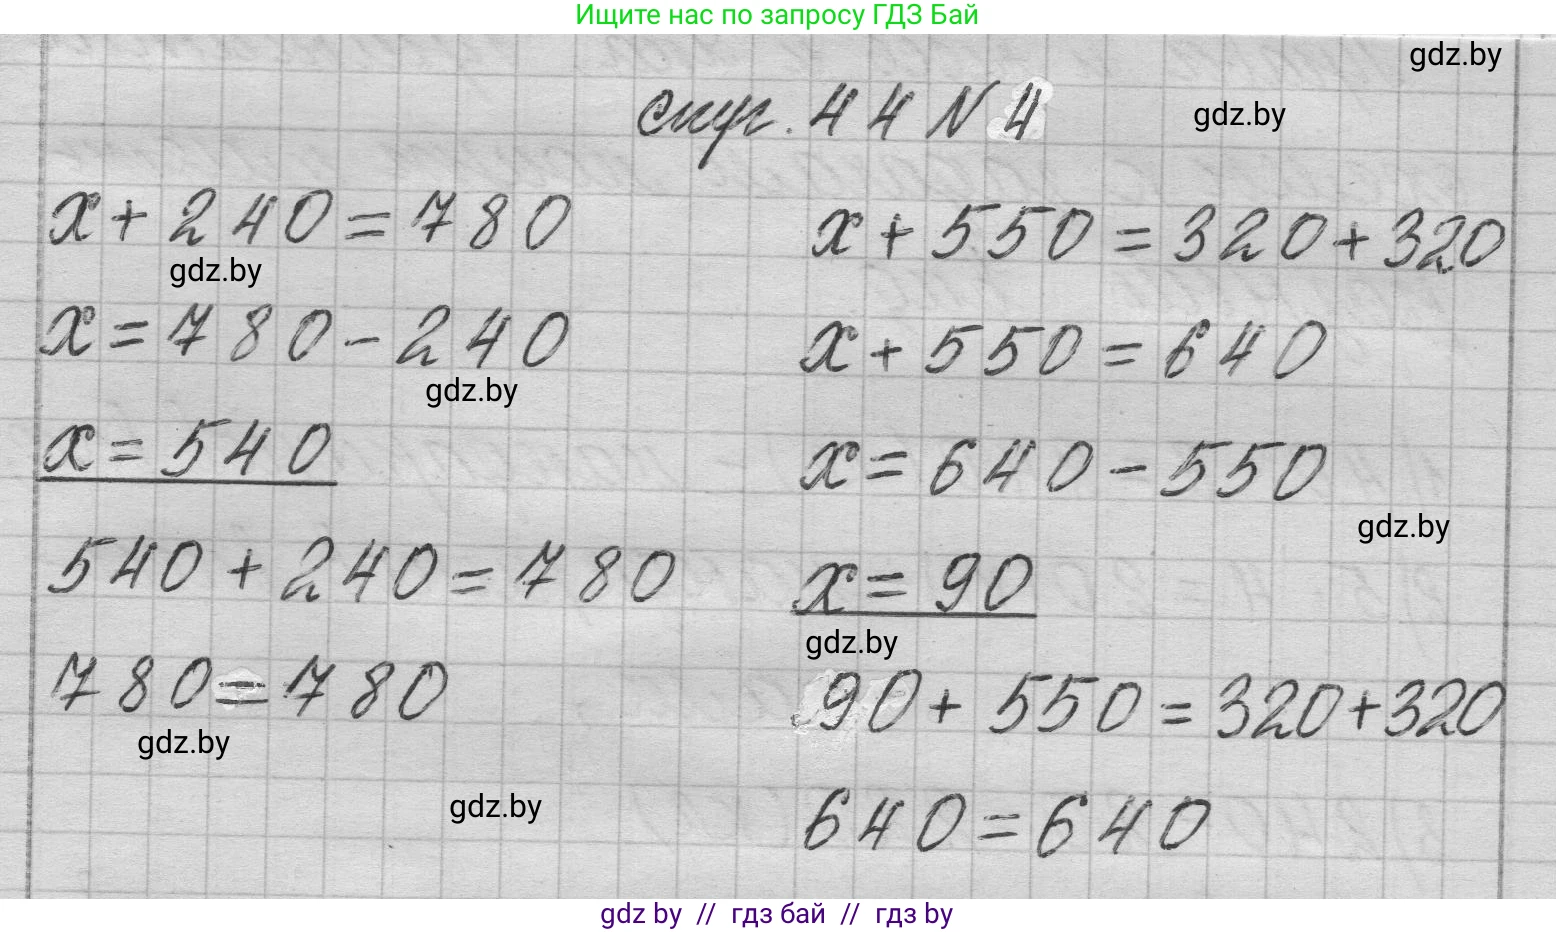 Ищите нас по запросу ГДЗ Бай
gdz.by
стр. 44 N 4
gdz.by
x + 240 = 780
gdz.by
x = 780 - 240
gdz.by
x = 540
540 + 240 = 780
780 = 780
gdz.by
gdz.by
x + 550 = 320 + 320
x + 550 = 640
x = 640 - 550
gdz.by
x = 90
gdz.by
90 + 550 = 320 + 320
640 = 640
gdz by // гдз бай // гдз by